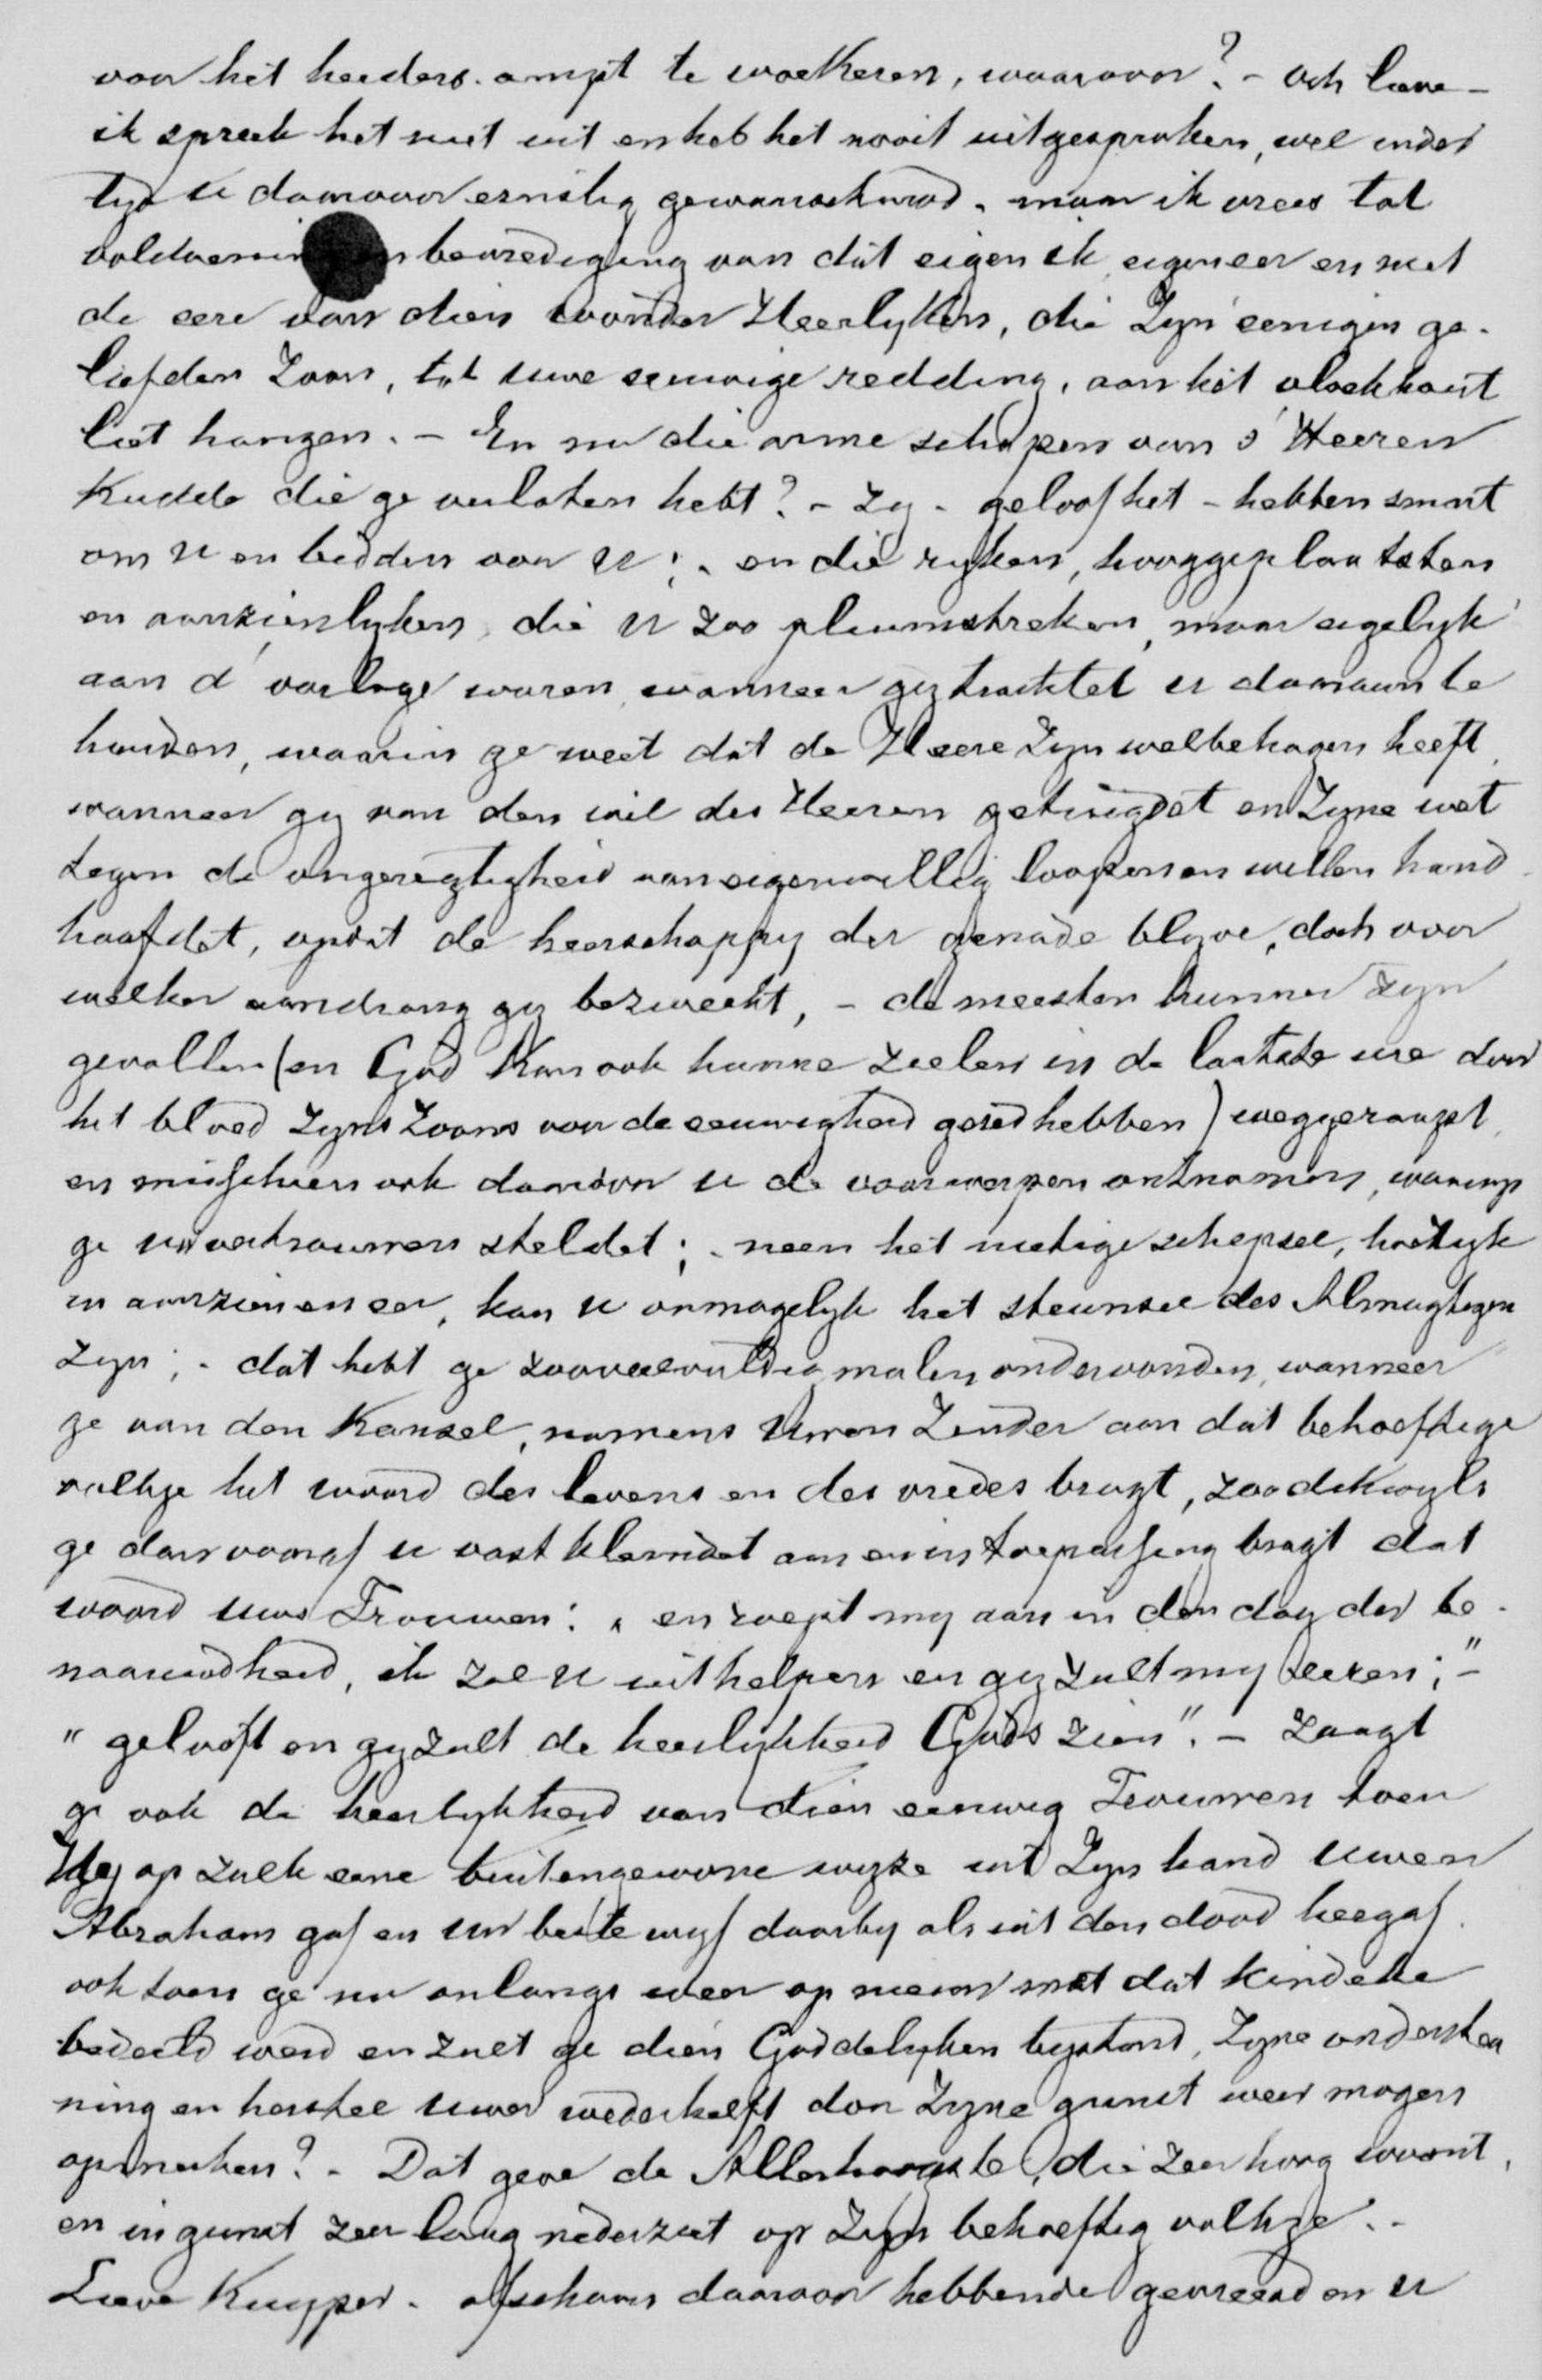 voor het herders-ampt te woekeren, waarvoor? - och lieve -
ik spreek het niet uit en heb het nooit uitgesproken, wel inder
tyd U daarvoor ernstig gewaarschuwd - maar ik vrees tot
voldoenin en bevrediging van dat eigen ik, eigen eer en niet
de eere van dien wonder Heerlyken, die Zyn eenigen ge-
liefden Zoon, tot uwe eeuwige redding, aan het vloekhout
liet hangen. - En nu die arme schapen van 's Heeren
Kudde die ge verlaten hebt? - Zy - geloof het - hebben smart
om U en bidden voor U; - en die ryken, hooggeplaatsten
en aanzienlyken, die U zoo pluimstreken, maar eigelyk
aan d' oorloge waren, wanneer gy trachtet U daaraan te
houden, waarin ge weet dat de Heere Zyn welbehagen heeft,
wanneer gy van den wil des Heeren getuigdet en Zyne wet
tegen de ongeregtigheid van eigenwillig loopen en willen hand
haafdet, opdat de heerschappy der genade blyve, doch voor
welker aandrang gy bezweekt, - de meesten hunner zyn
gevallen (en God kan ook hunne zielen in de laatste ure door
het bloed Zyns Zoons voor de eeuwigheid gered hebben) weggeraapt
en misschien ook daardoor U de voorwerpen ontnomen, waarop
ge uw vertrouwen steldet; - neen het nietige schepsel, hoe ryk
in aanzien en eer, kan U onmogelyk het steunsel des Almagtigen
zyn; - dat hebt ge zooveelvuldig malen ondervonden, wanneer
ge van den Kansel, namens Uwen Zender aan dat behoeftige
volkje het woord des levens en des vredes bragt, zoo dikwyls
ge dan vooraf U vast klemdet aan en in toepassing bragt dat
woord uws Trouwen: „ en roept my aan in den dag der be-
naauwdheid, ik zal U uithelpen en gy zult my eeren;" -
" gelooft en gy zult de heerlykheid Gods zien". - Zaagt
ge ook de heerlykheid van dien eeuwig Trouwen toen
Hy op zulk eene buitengewone wyze uit Zyn hand uwen
Abraham gaf en uw beste wyf daarby als uit den dood heergaf.
ook toen ge nu onlangs weer op nieuw met dat kindeke
bedeeld werd en zult ge dien Goddelyken bystand, Zyne onderstea
ning en herstel uwer wederhelft door Zyne gunst weer mogen
opmerken? - Dat geve de Allerhoogste, die zeer hoog woont,
en in gunst zeer laag nederziet op Zyn behoeftig volkje. -
Lieve Kuyper - ofschoon daarvoor hebbende gevreesd en U